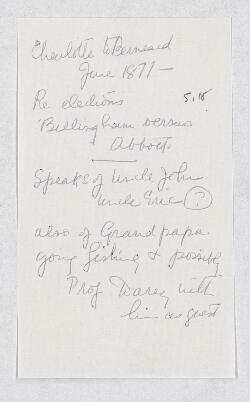 Charlotte to Bernard
June 1877 —
Re elections 5,18
Billingham versus
Abbott.
Speaks of Uncle John
Uncle Eric (?)
also of Grandpapa
going fishing & possibly
Prof. Darey with
him as guest